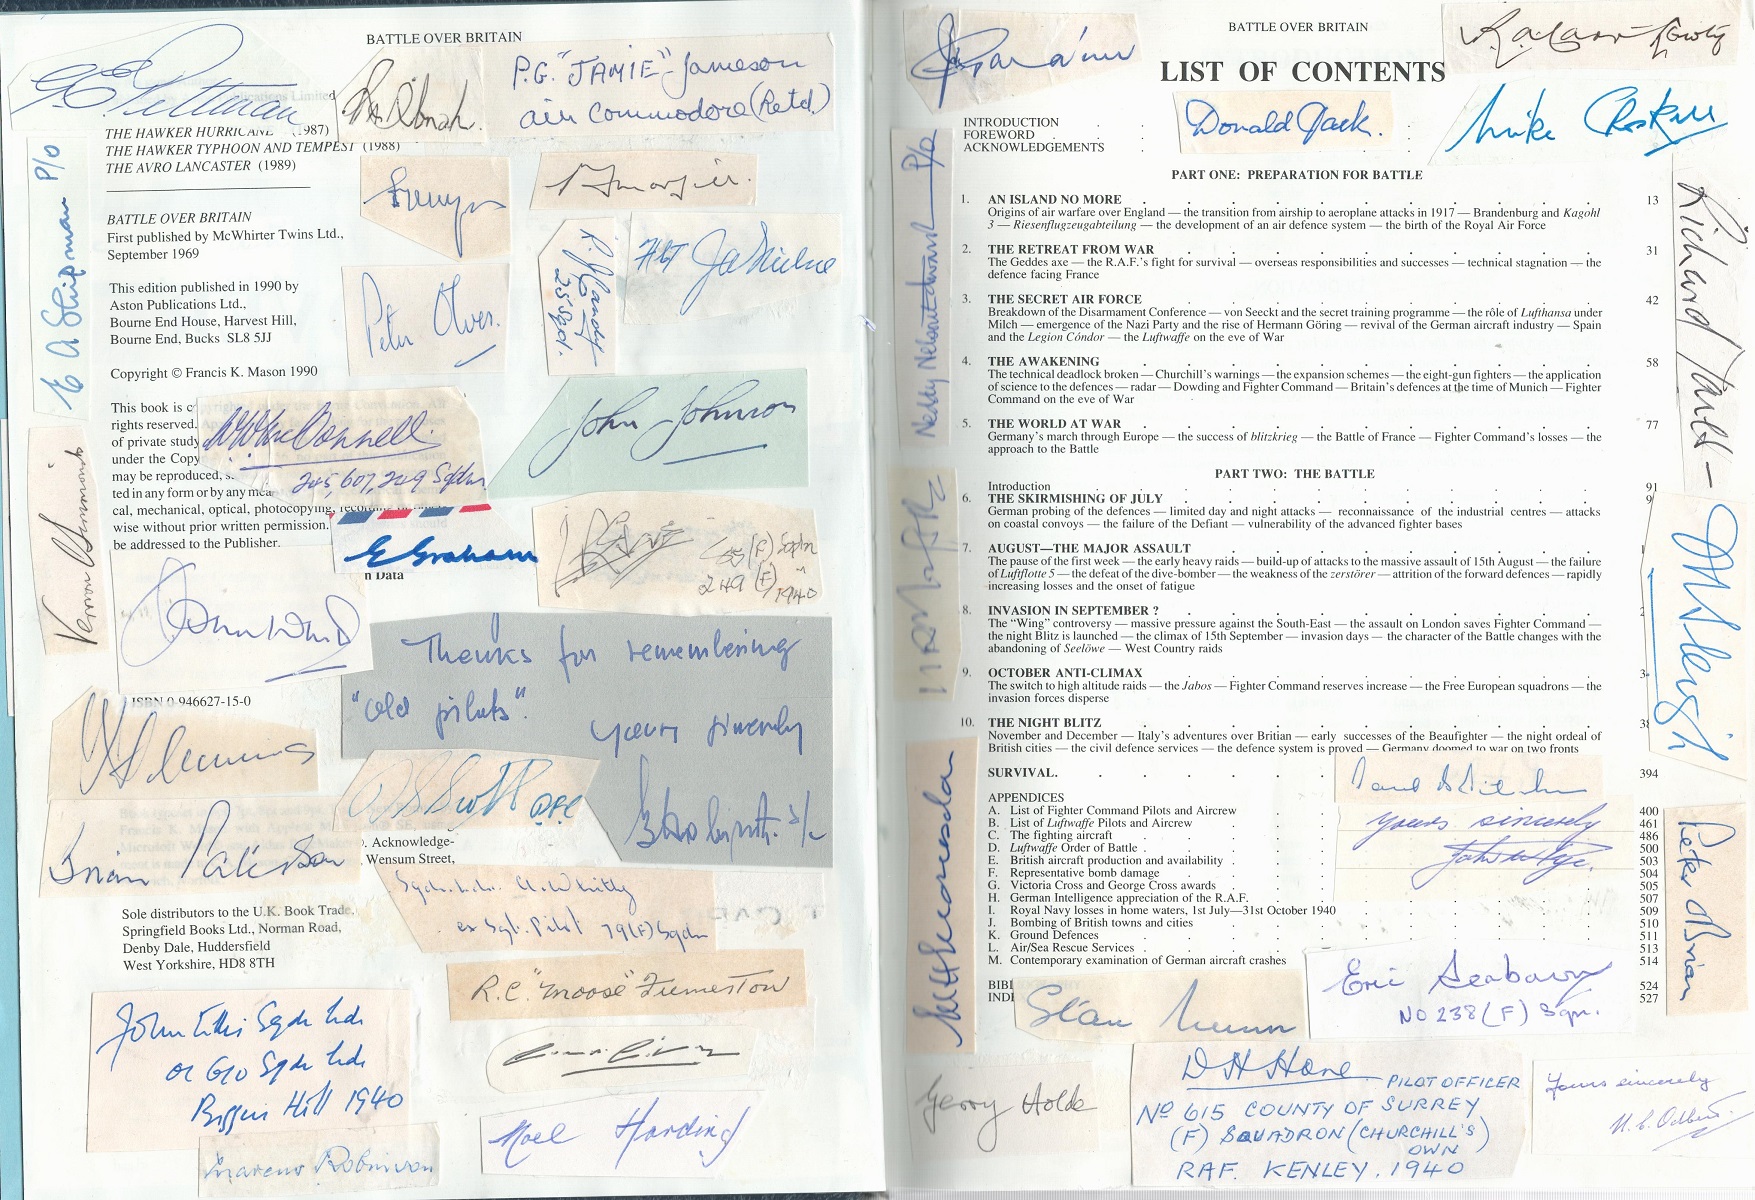 BATTLE OVER BRITAIN
P.G. "JAMIE" Jameson
air Commodore (Retd.)
THE HAWKER HURRICANE (1987)
THE HAWKER TYPHOON AND TEMPEST (1988)
THE AVRO LANCASTER (1989)
E A Shipman P/O
BATTLE OVER BRITAIN
First published by McWhirter Twins Ltd.,
September 1969
25 Sqd.
This edition published in 1990 by
Aston Publications Ltd.,
Bourne End House, Harvest Hill,
Bourne End, Bucks SL8 5JJ
Peter Olver.
Copyright © Francis K. Mason 1990
This book is c
rights reserved.
of private study
under the Copy
may be reproduced, s
ted in any form or by any mea
cal, mechanical, optical, photocopying, recording
wise without prior written permission.
be addressed to the Publisher.
MacDonnell.
245, 607, 249 Sqdn.
John Johnson
E Graham
n Data
Sqdn
249 (F) 1940
Vernon Simmonds
Thanks for remembering
"old pilots".
yours sincerely
ISBN 0-946627-15-0
D S Scott DFC
Brian Paterson
). Acknowledge-
, Wensum Street,
Sqdn. Ldr. A. Whitty
ex Sgt. Pilot 79(F) Sqdn
Sole distributors to the U.K. Book Trade,
Springfield Books Ltd., Norman Road,
Denby Dale, Huddersfield
West Yorkshire, HD8 8TH
R.C. "Moose" Fumerton
John Ellis Sqdn Ldr
OC 610 Sqdn Ldr
Biggin Hill 1940
Noel Harding
Marcus Robinson
BATTLE OVER BRITAIN
LIST OF CONTENTS
Donald Jack.
Mike Croskell
INTRODUCTION
FOREWORD
ACKNOWLEDGEMENTS
PART ONE: PREPARATION FOR BATTLE
1. AN ISLAND NO MORE 13
Origins of air warfare over England — the transition from airship to aeroplane attacks in 1917 — Brandenburg and Kagohl
3 — Riesenflugzeugabteilung — the development of an air defence system — the birth of the Royal Air Force
2. THE RETREAT FROM WAR 31
The Geddes axe — the R.A.F.'s fight for survival — overseas responsibilities and successes — technical stagnation — the
defence facing France
3. THE SECRET AIR FORCE 42
Breakdown of the Disarmament Conference — von Seeckt and the secret training programme — the rôle of Lufthansa under
Milch — emergence of the Nazi Party and the rise of Hermann Göring — revival of the German aircraft industry — Spain
and the Legion Cóndor — the Luftwaffe on the eve of War
4. THE AWAKENING 58
The technical deadlock broken — Churchill's warnings — the expansion schemes — the eight-gun fighters — the application
of science to the defences — radar — Dowding and Fighter Command — Britain's defences at the time of Munich — Fighter
Command on the eve of War
5. THE WORLD AT WAR 77
Germany's march through Europe — the success of blitzkrieg — the Battle of France — Fighter Command's losses — the
approach to the Battle
PART TWO: THE BATTLE
Introduction 91
6. THE SKIRMISHING OF JULY 9
German probing of the defences — limited day and night attacks — reconnaissance of the industrial centres — attacks
on coastal convoys — the failure of the Defiant — vulnerability of the advanced fighter bases
7. AUGUST—THE MAJOR ASSAULT 1
The pause of the first week — the early heavy raids — build-up of attacks to the massive assault of 15th August — the failure
of Luftflotte 5 — the defeat of the dive-bomber — the weakness of the zerstörer — attrition of the forward defences — rapidly
increasing losses and the onset of fatigue
8. INVASION IN SEPTEMBER ? 2
The "Wing" controversy — massive pressure against the South-East — the assault on London saves Fighter Command —
the night Blitz is launched — the climax of 15th September — invasion days — the character of the Battle changes with the
abandoning of Seelöwe — West Country raids
9. OCTOBER ANTI-CLIMAX 3
The switch to high altitude raids — the Jabos — Fighter Command reserves increase — the Free European squadrons — the
invasion forces disperse
10. THE NIGHT BLITZ 38
November and December — Italy's adventures over Britian — early successes of the Beaufighter — the night ordeal of
British cities — the civil defence services — the defence system is proved — Germany doomed to war on two fronts
SURVIVAL. 394
APPENDICES
A. List of Fighter Command Pilots and Aircrew 400
B. List of Luftwaffe Pilots and Aircrew 461
C. The fighting aircraft 486
D. Luftwaffe Order of Battle 500
E. British aircraft production and availability 503
F. Representative bomb damage 504
G. Victoria Cross and George Cross awards 505
H. German Intelligence appreciation of the R.A.F. 507
I. Royal Navy losses in home waters, 1st July—31st October 1940 509
J. Bombing of British towns and cities 510
K. Ground Defences 511
L. Air/Sea Rescue Services 513
M. Contemporary examination of German aircraft crashes 514
BIBLIOGRAPHY 524
INDE 527
Richard
yours sincerely
Peter O'Brian
Eric Seabourne
NO 238 (F) Sqn.
Gerry Holde
D H Hone
PILOT OFFICER
No 615 COUNTY OF SURREY
(F) SQUADRON (CHURCHILL'S
OWN)
RAF. KENLEY. 1940
Yours sincerely